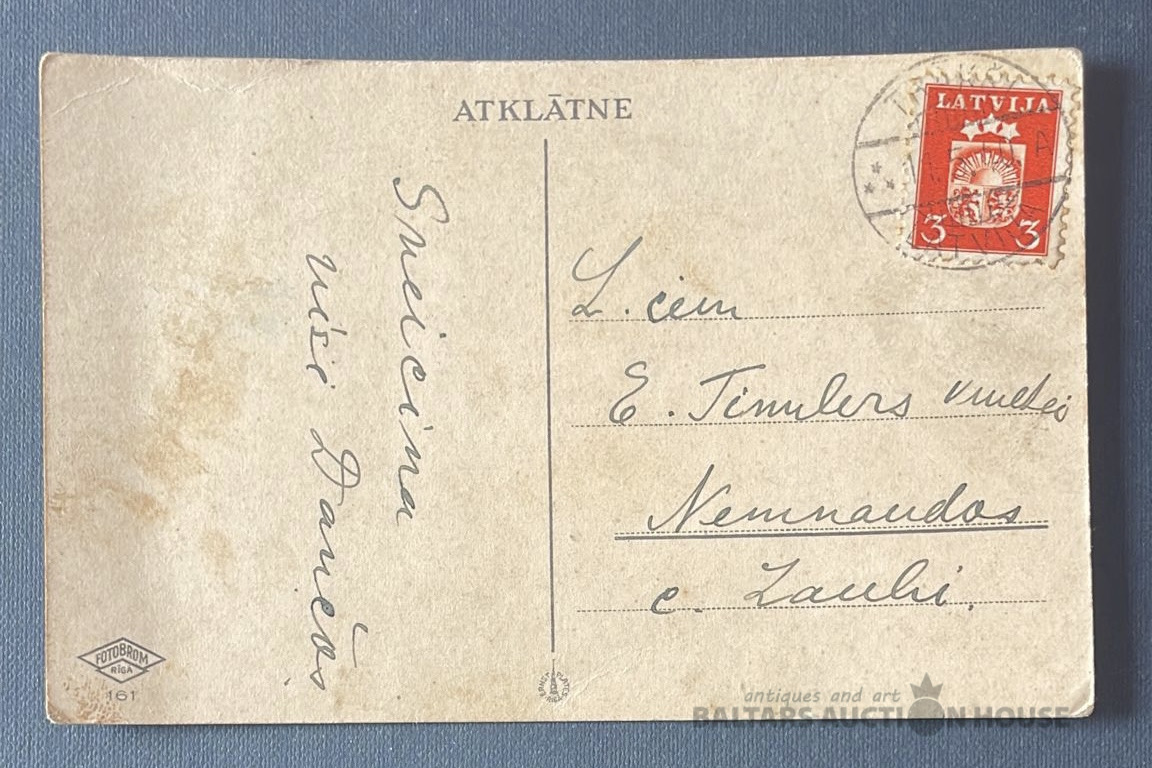 ATKLĀTNE
LATVIJA
3 3
A
Sveicina
visi Dancōs
L. ciem
E. Timulers
Nemnaudas
c. Zaubi.
FOTOBROM
RĪGĀ
161
antiques and art
BALTARS AUCTION HOUSE